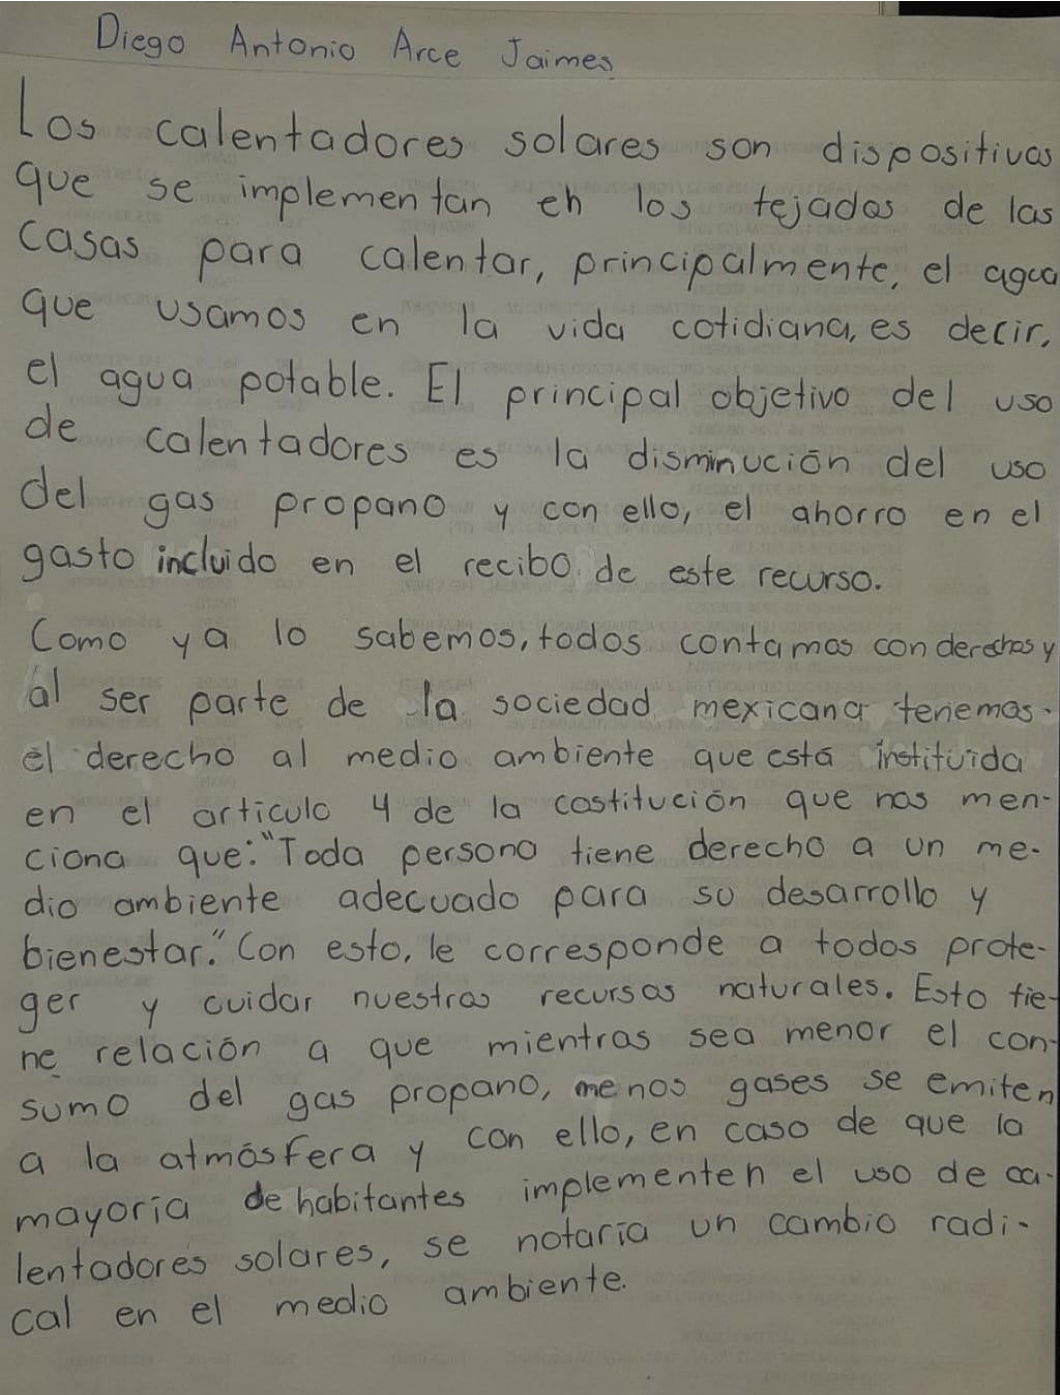 Diego Antonio Arce Jaimes
Los calentadores solares son dispositivos
que se implementan en los tejados de las
casas para calentar, principalmente, el agua
que usamos en la vida cotidiana, es decir,
el agua potable. El principal objetivo del uso
de calentadores es la disminución del uso
del gas propano y con ello, el ahorro en el
gasto incluido en el recibo de este recurso.
Como ya lo sabemos, todos contamos con derechos y
al ser parte de la sociedad mexicana tenemos
el derecho al medio ambiente que está instituida
en el articulo 4 de la costitución que nos men-
ciona que: "Toda persona tiene derecho a un me-
dio ambiente adecuado para su desarrollo y
bienestar." Con esto, le corresponde a todos prote-
ger y cuidar nuestros recursos naturales. Esto tie-
ne relación a que mientras sea menor el con-
sumo del gas propano, menos gases se emiten
a la atmósfera y con ello, en caso de que la
mayoría de habitantes implementen el uso de ca-
lentadores solares, se notaría un cambio radi-
cal en el medio ambiente.